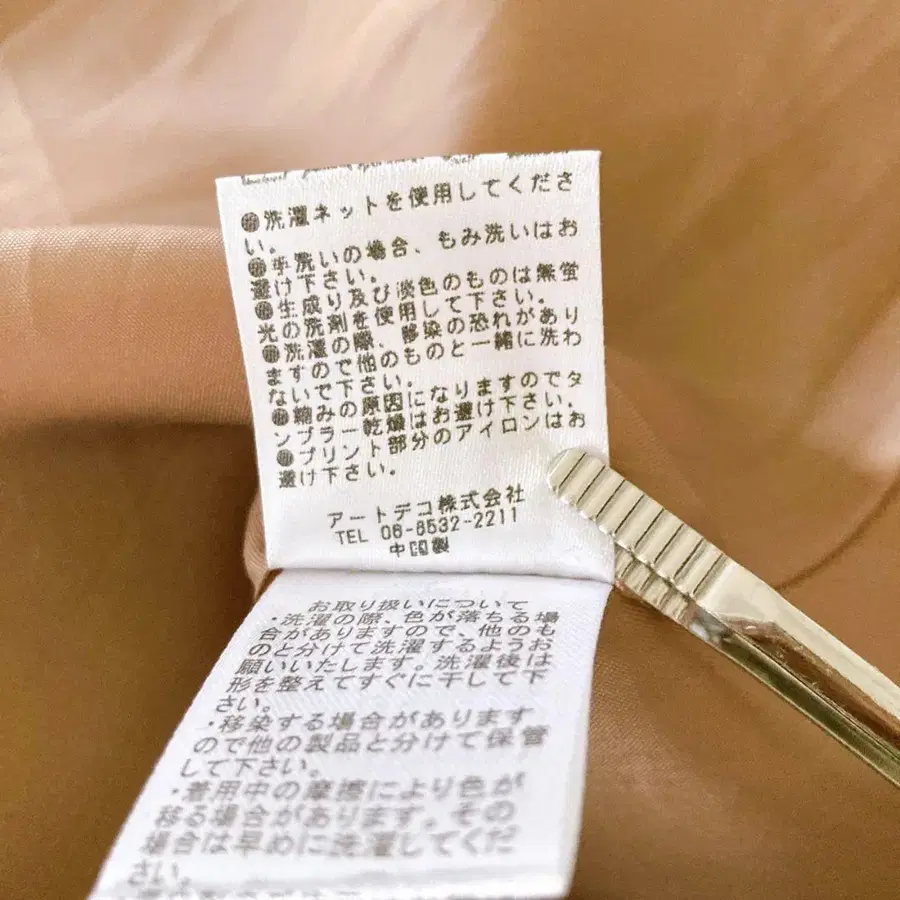 洗濯ネットを使用してくださ
い。
手洗いの場合、もみ洗いはお
避け下さい。
生成り及び淡色のものは無蛍
光の洗剤を使用して下さい。
洗濯の際、移染の恐れがあり
ますので他のものと一緒に洗わ
ないで下さい。
縮みの原因になりますのでタ
ンブラー乾燥はお避け下さい。
プリント部分のアイロンはお
避け下さい。
アートデコ株式会社
TEL 06-6532-2211
中国製
お取り扱いについて
・洗濯の際、色が落ちる場
合がありますので、他のも
のと分けて洗濯するようお
願いいたします。洗濯後は
形を整えてすぐに干して下
さい。
・移染する場合があります
ので他の製品と分けて保管
して下さい。
・着用中の摩擦により色が
移る場合があります。その
場合は早めに洗濯してくだ
さい。